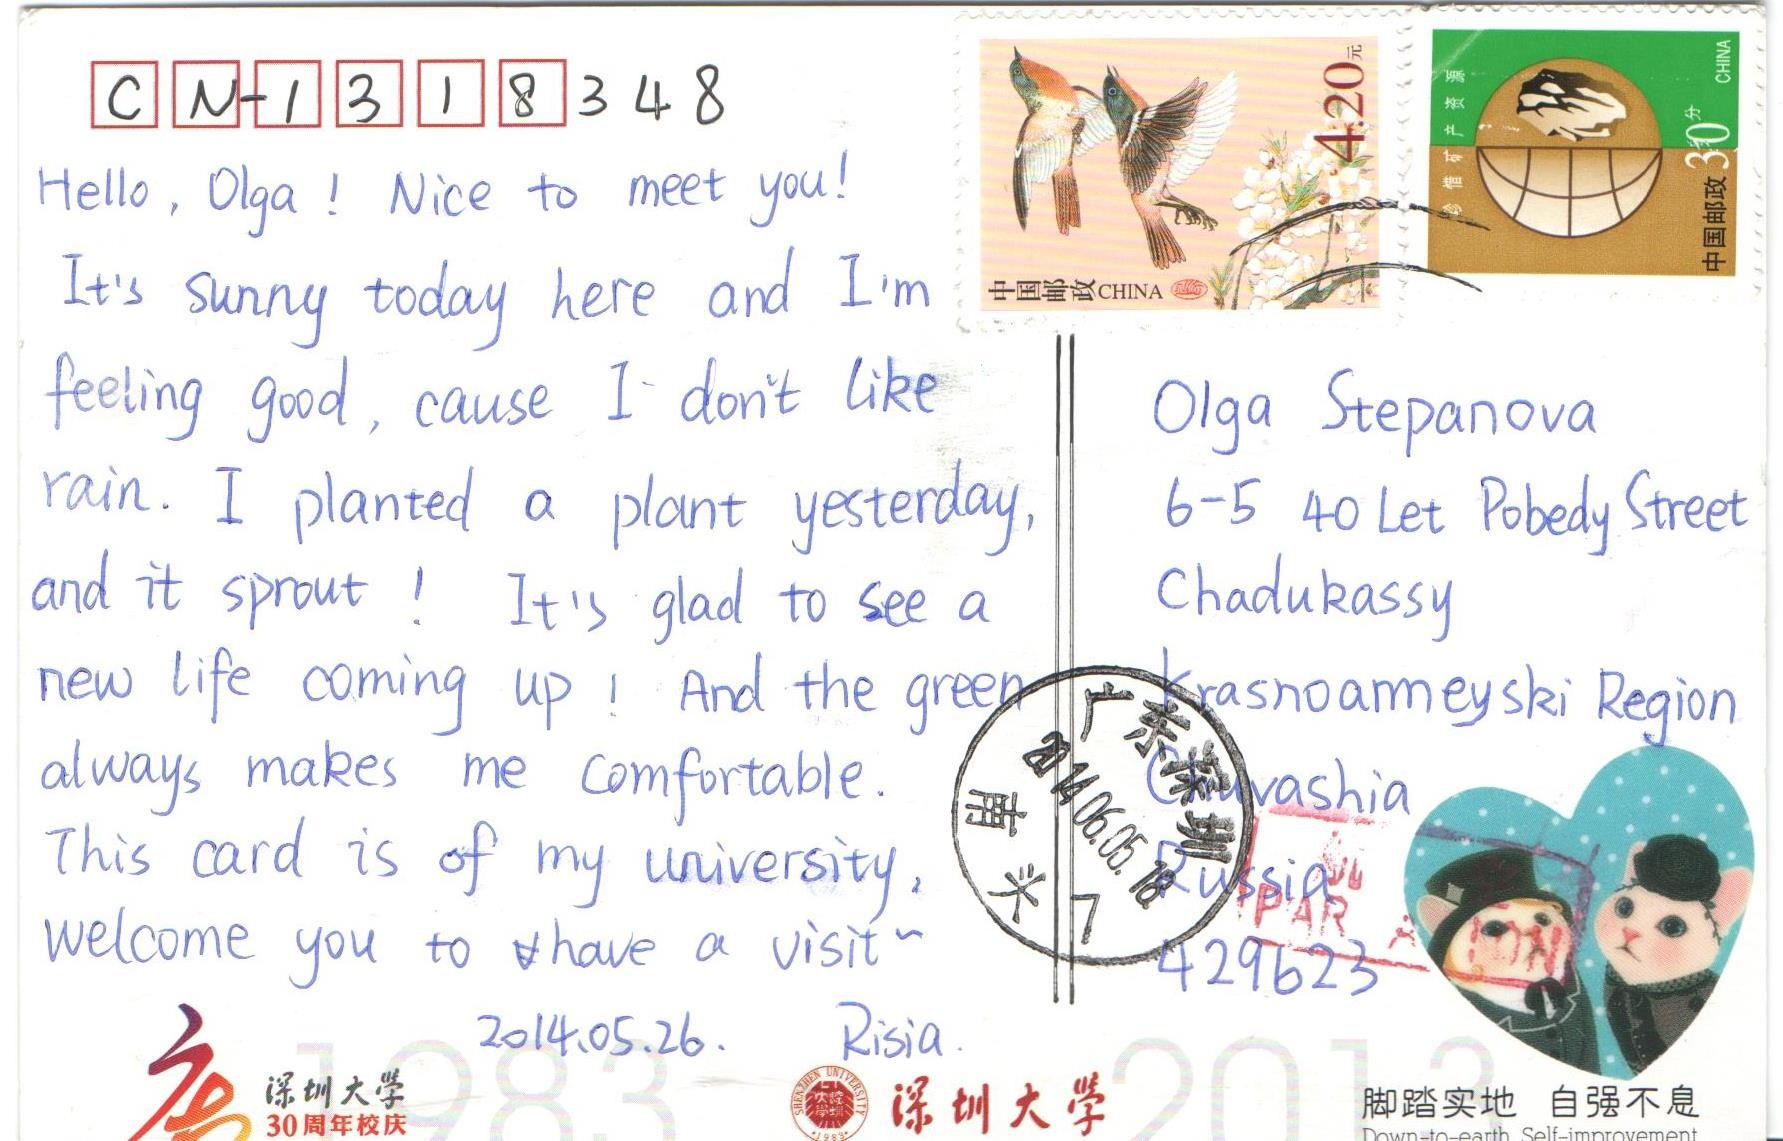 CN-1318348
Hello, Olga! Nice to meet you!
It's sunny today here and I'm
feeling good, cause I don't like
rain. I planted a plant yesterday,
and it sprout! It's glad to see a
new life coming up! And the green
always makes me comfortable.
This card is of my university,
welcome you to have a visit~
2014.05.26. Risia.
4.20元
中国邮政CHINA
珍惜矿产资源
CHINA
30分
中国邮政
Olga Stepanova
6-5 40 Let Pobedy Street
Chadukassy
Krasnoarmeyski Region
Chuvashia
Russia
429623
广东深圳
2014.06.05.18
南头
PAR
深圳大学
30周年校庆
1983
SHENZHEN UNIVERSITY
1983
深圳大学
2013
脚踏实地 自强不息
Down-to-earth Self-improvement